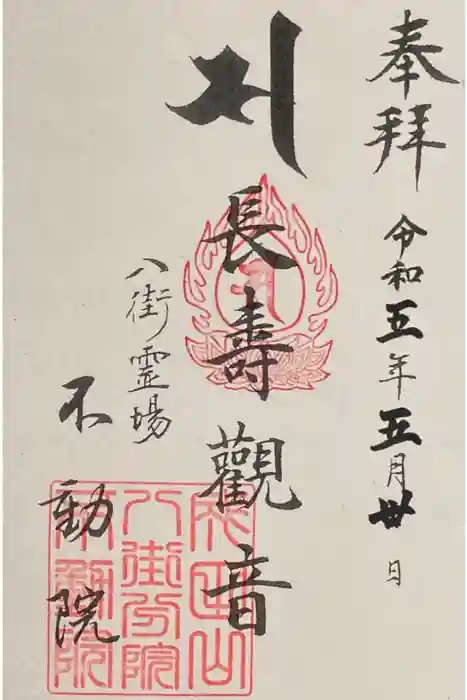 奉拝
令和五年五月廿日
長壽觀音
八街霊場
不動院
成田山
八街分院
不動院